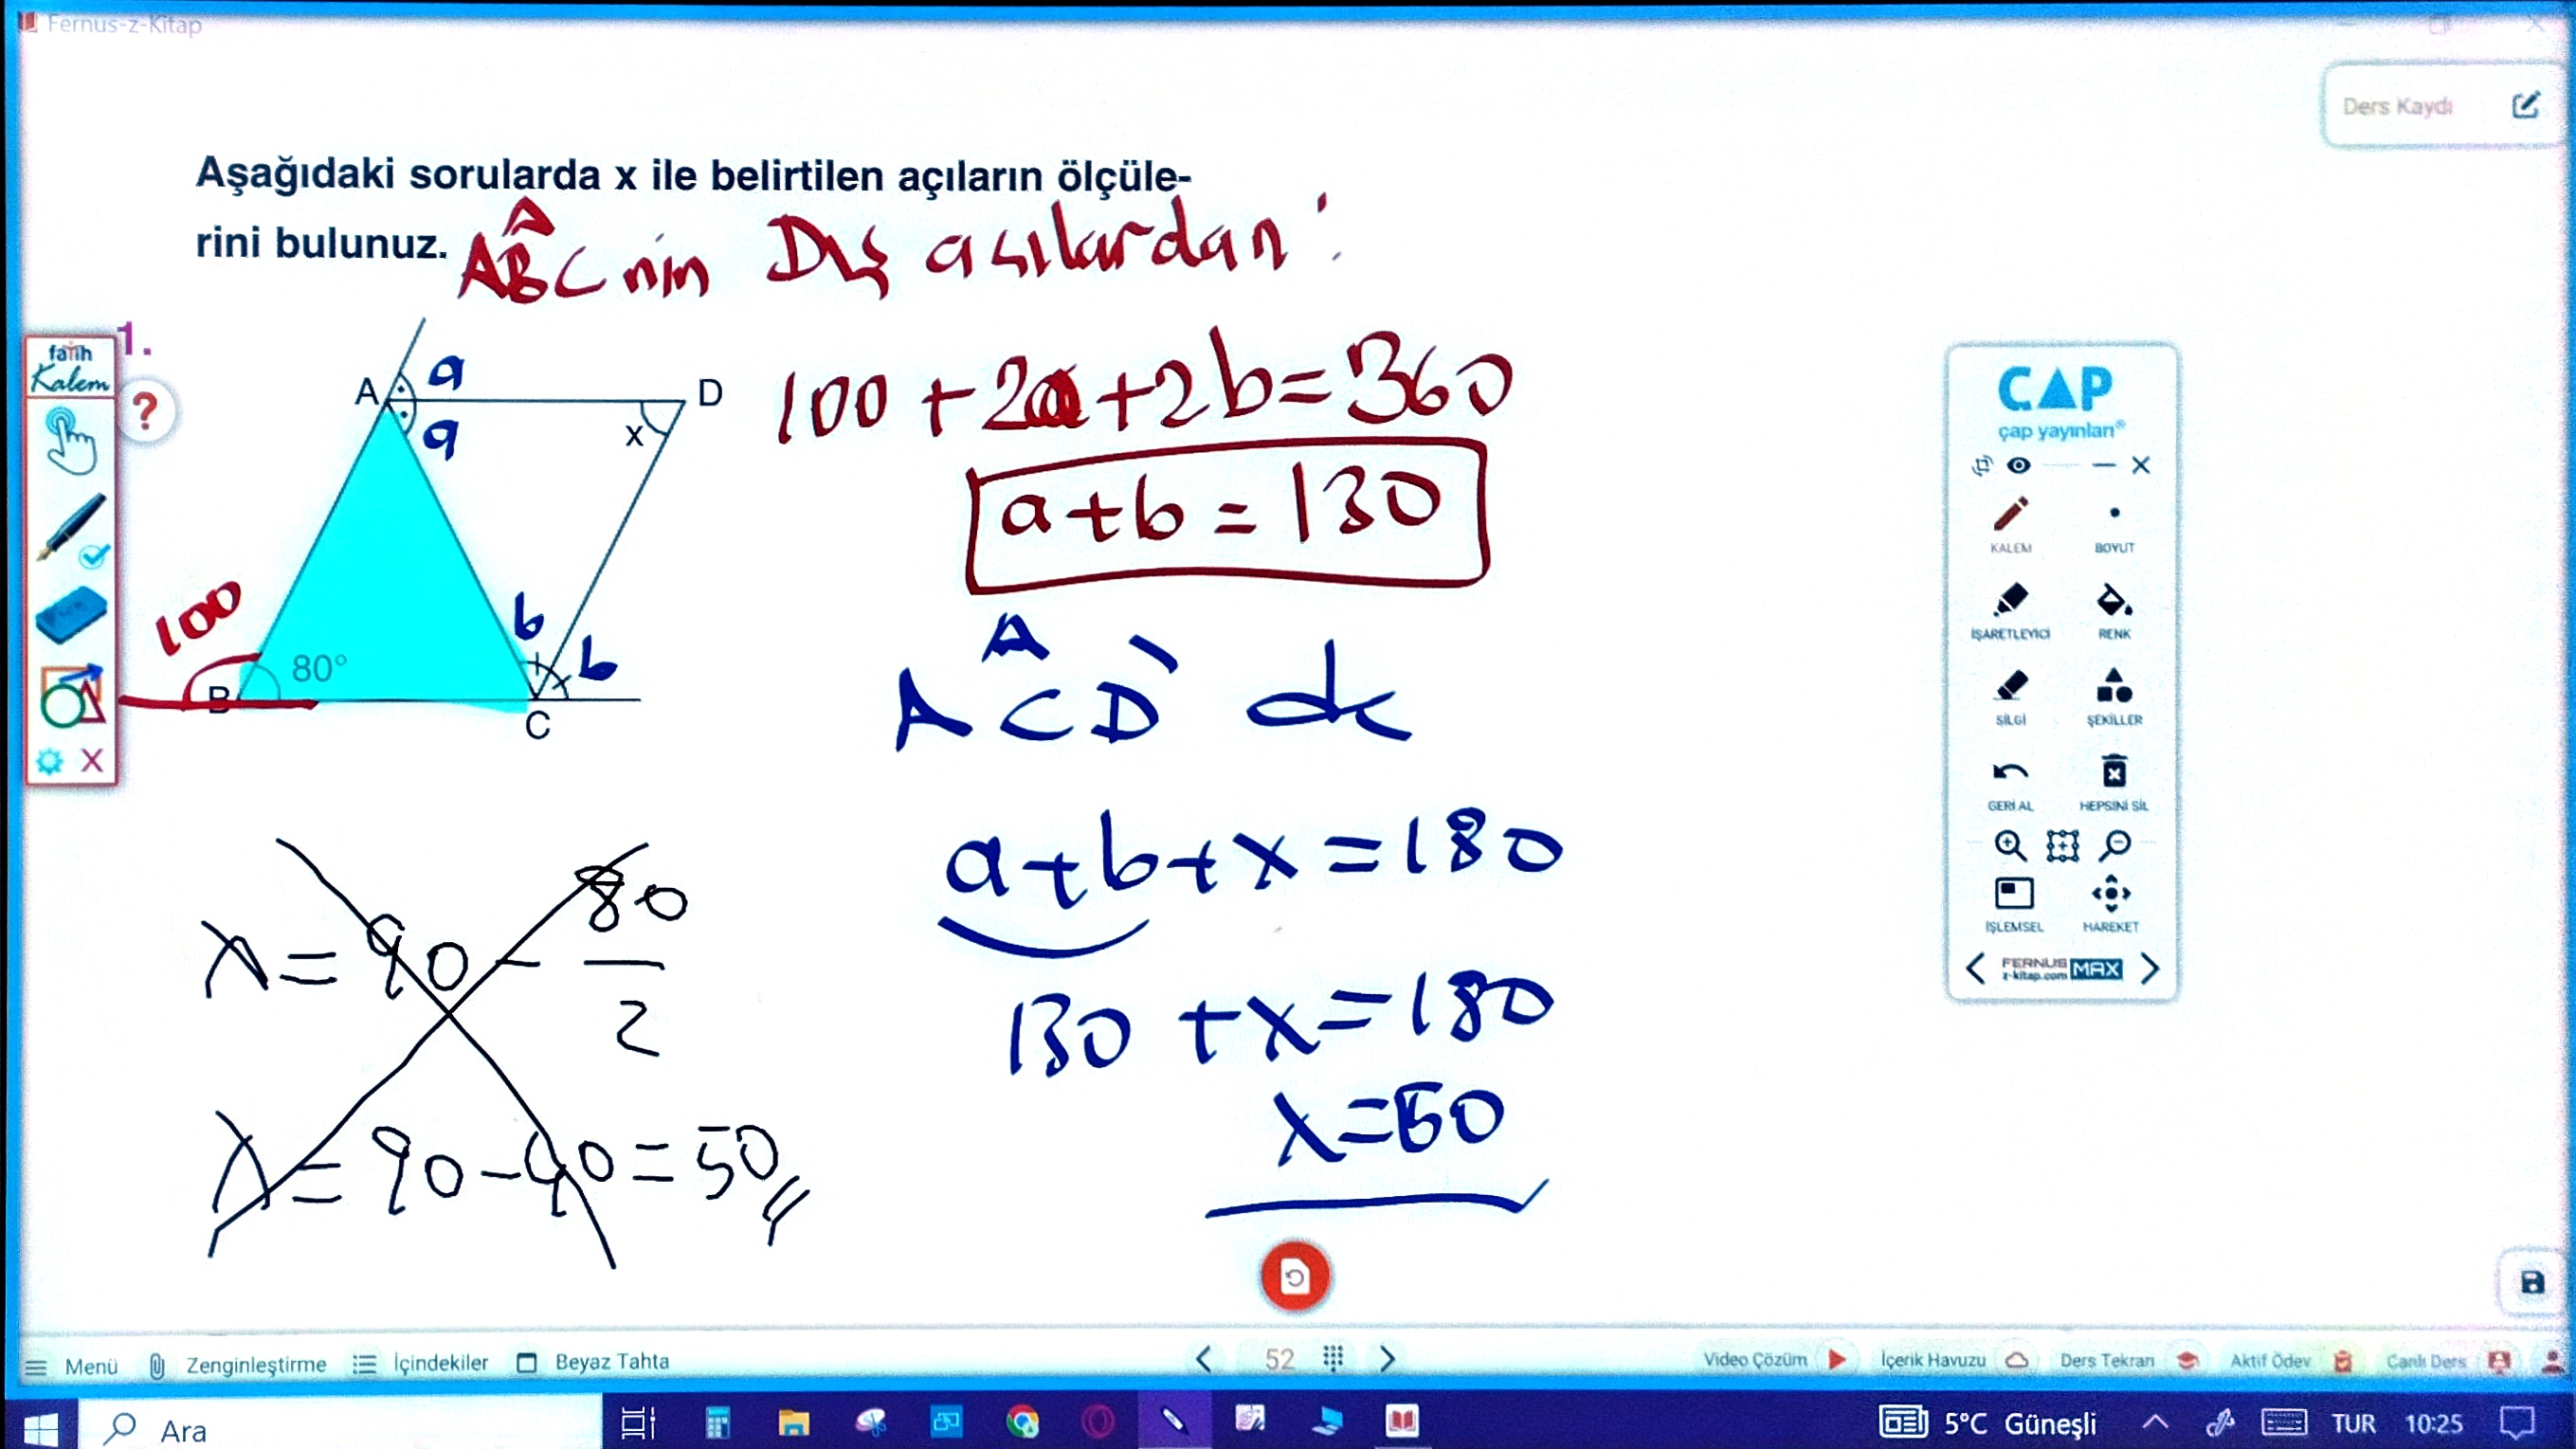 Fernus-z-Kitap
Ders Kaydı
Aşağıdaki sorularda x ile belirtilen açıların ölçüle-
rini bulunuz.
ABC nin Dış açılardan :
1.
fatih
Kalem
?
A
a
a
D
x
100
80°
B
b
b
C
100 + 2a + 2b = 360
a + b = 130
ACD de
a + b + x = 180
130 + x = 180
x = 50
x = 90 - 80
2
x = 90 - 40 = 50
ÇAP
çap yayınları®
KALEM BOYUT
İŞARETLEYİCİ RENK
SİLGİ ŞEKİLLER
GERİ AL HEPSİNİ SİL
İŞLEMSEL HAREKET
FERNUS
z-kitap.com MAX
Menü Zenginleştirme İçindekiler Beyaz Tahta 52 Video Çözüm İçerik Havuzu Ders Tekrarı Aktif Ödev Canlı Ders
Ara 5°C Güneşli TUR 10:25